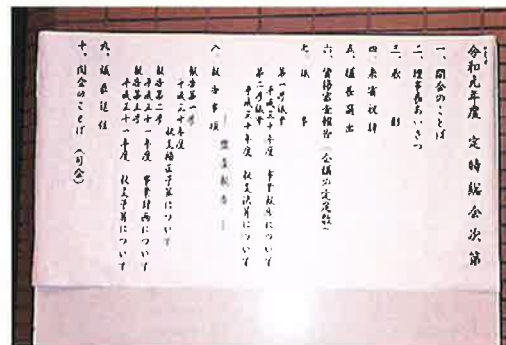 令和元年度 定時総会次第
一、開会のことば
二、理事長あいさつ
三、表 彰
四、来賓祝辞
五、議長選出
六、資格審査報告(会議の定足数)
七、議 事
第一号議案
平成三十年度 事業報告について
第二号議案
平成三十年度 収支決算について
― 監査報告 ―
八、報告事項
報告第一号
平成三十年度
収支補正予算について
報告第二号
平成三十一年度 事業計画について
報告第三号
平成三十一年度 収支予算について
九、議長退任
十、閉会のことば (司会)